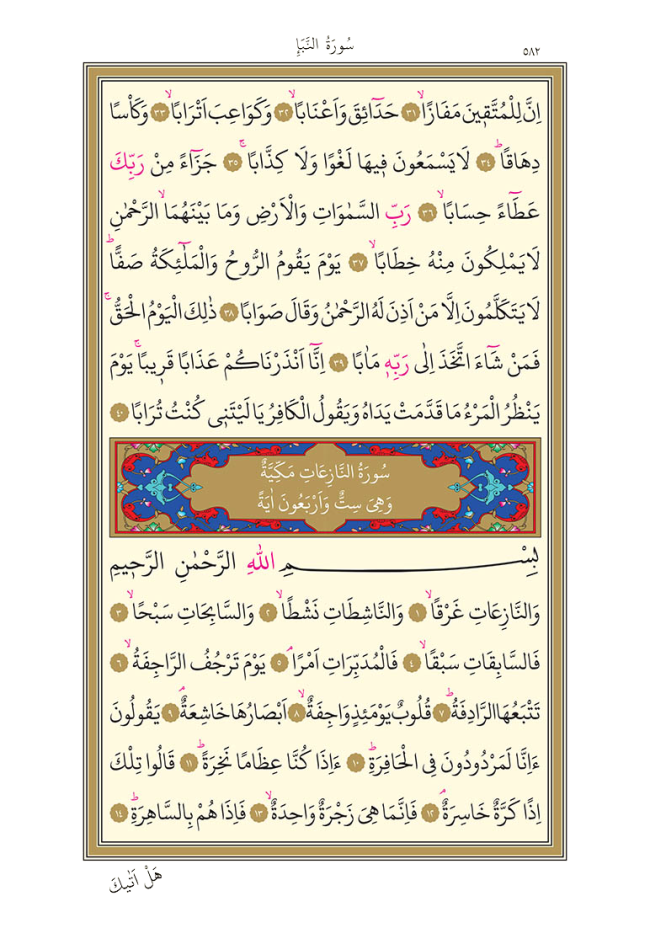 سُورَةُ النَّبَأِ
٥٨٢
اِنَّ لِلْمُتَّق۪ينَ مَفَازًاۙ ﴿٣١﴾ حَدَٓائِقَ وَاَعْنَابًاۙ ﴿٣٢﴾ وَكَوَاعِبَ اَتْرَابًاۙ ﴿٣٣﴾ وَكَأْسًا
دِهَاقًاۜ ﴿٣٤﴾ لَا يَسْمَعُونَ ف۪يهَا لَغْوًا وَلَا كِذَّابًاۚ ﴿٣٥﴾ جَزَٓاءً مِنْ رَبِّكَ
عَطَٓاءً حِسَابًاۙ ﴿٣٦﴾ رَبِّ السَّمٰوَاتِ وَالْاَرْضِ وَمَا بَيْنَهُمَا الرَّحْمٰنِ
لَا يَمْلِكُونَ مِنْهُ خِطَابًاۙ ﴿٣٧﴾ يَوْمَ يَقُومُ الرُّوحُ وَالْمَلٰٓئِكَةُ صَفًّاۜ
لَا يَتَكَلَّمُونَ اِلَّا مَنْ اَذِنَ لَهُ الرَّحْمٰنُ وَقَالَ صَوَابًا ﴿٣٨﴾ ذٰلِكَ الْيَوْمُ الْحَقُّۚ
فَمَنْ شَٓاءَ اتَّخَذَ اِلٰى رَبِّه۪ مَاٰبًا ﴿٣٩﴾ اِنَّٓا اَنْذَرْنَاكُمْ عَذَابًا قَر۪يبًاۚ يَوْمَ
يَنْظُرُ الْمَرْءُ مَا قَدَّمَتْ يَدَاهُ وَيَقُولُ الْكَافِرُ يَا لَيْتَن۪ي كُنْتُ تُرَابًا ﴿٤٠﴾
سُورَةُ النَّازِعَاتِ مَكِّيَّةٌ
وَهِيَ سِتٌّ وَاَرْبَعُونَ اٰيَةً
بِسْمِ اللّٰهِ الرَّحْمٰنِ الرَّح۪يمِ
وَالنَّازِعَاتِ غَرْقًاۙ ﴿١﴾ وَالنَّاشِطَاتِ نَشْطًاۙ ﴿٢﴾ وَالسَّابِحَاتِ سَبْحًاۙ ﴿٣﴾
فَالسَّابِقَاتِ سَبْقًاۙ ﴿٤﴾ فَالْمُدَبِّرَاتِ اَمْرًاۢ ﴿٥﴾ يَوْمَ تَرْجُفُ الرَّاجِفَةُۙ ﴿٦﴾
تَتْبَعُهَا الرَّادِفَةُۜ ﴿٧﴾ قُلُوبٌ يَوْمَئِذٍ وَاجِفَةٌۙ ﴿٨﴾ اَبْصَارُهَا خَاشِعَةٌۢ ﴿٩﴾ يَقُولُونَ
ءَاِنَّا لَمَرْدُودُونَ فِي الْحَافِرَةِۜ ﴿١٠﴾ ءَاِذَا كُنَّا عِظَامًا نَخِرَةًۜ ﴿١١﴾ قَالُوا تِلْكَ
اِذًا كَرَّةٌ خَاسِرَةٌۢ ﴿١٢﴾ فَاِنَّمَا هِيَ زَجْرَةٌ وَاحِدَةٌۙ ﴿١٣﴾ فَاِذَا هُمْ بِالسَّاهِرَةِۜ ﴿١٤﴾
هَلْ اَتٰيكَ